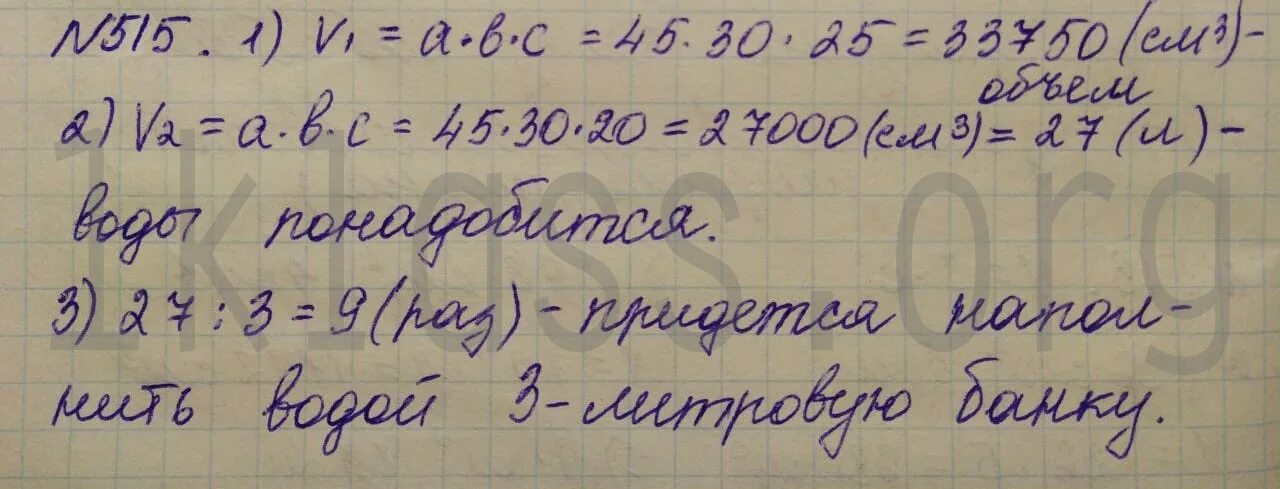 N515. 1) V₁ = а·в·с = 45·30·25 = 33750 (см³) -
объем
2) V₂ = а·в·с = 45·30·20 = 27000 (см³) = 27 (л) -
воды понадобится.
3) 27 : 3 = 9 (раз) - придется напол-
нить водой 3-литровую банку.
1klass.org